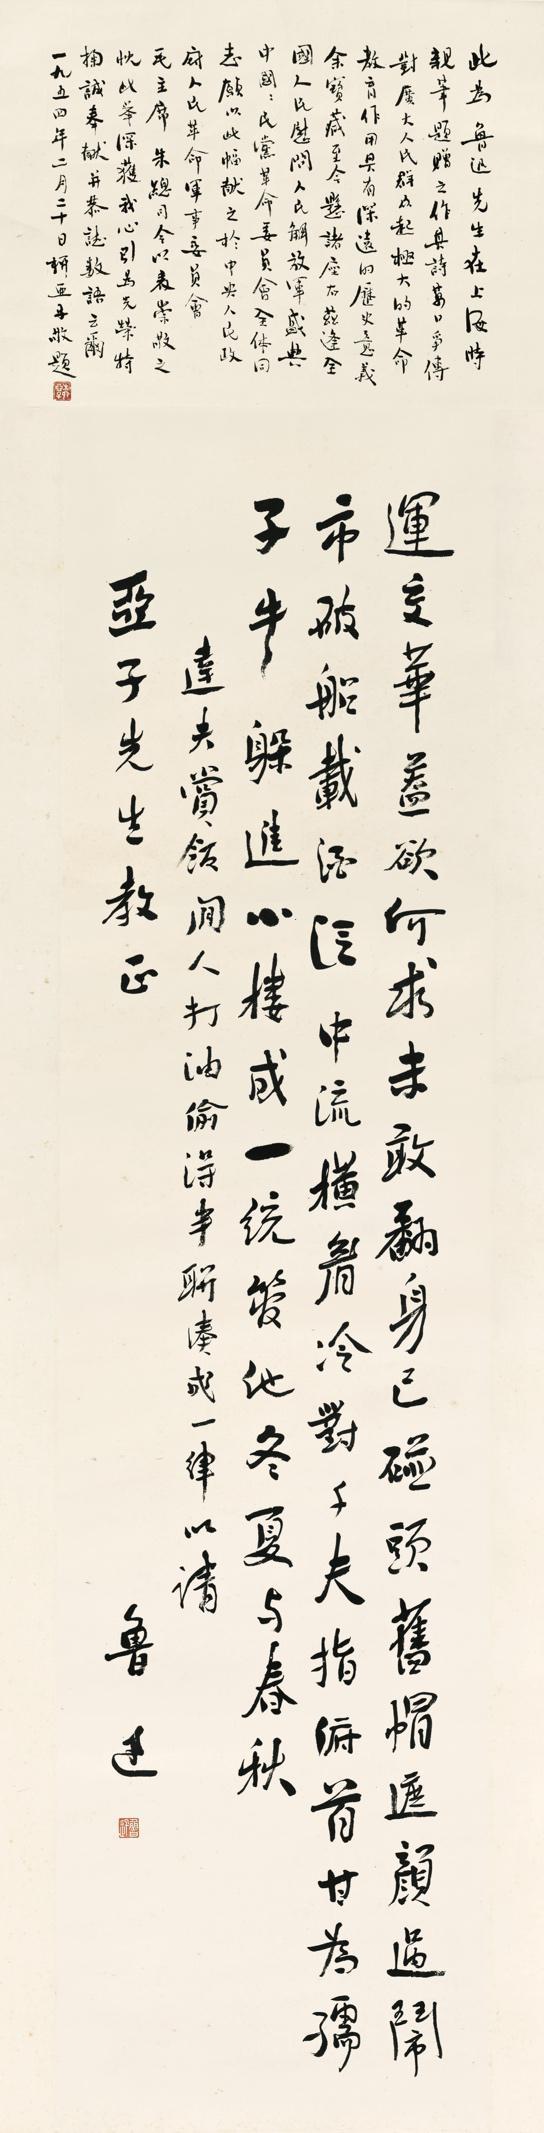 此為魯迅先生在上海時
親筆題贈之作其詩萬口爭傳
對廣大人民群众起極大的革命
教育作用具有深遠的歷史意義
余寶藏至今懸諸座右茲逢全
國人民慰問人民解放軍盛典
中國〻民黨革命委員會全体同
志願以此幅献之於中央人民政
府人民革命軍事委員會
毛主席朱總司令以表崇敬之
忱此舉深獲我心引為光榮特
掬誠奉献并恭誌數語云爾
一九五四年二月二十日柳亞子敬題
運交華蓋欲何求未敢翻身已碰頭舊帽遮顏過鬧
市破船載酒泛中流橫眉冷對千夫指俯首甘為孺
子牛躲進小樓成一統管他冬夏与春秋
達夫賞飯閒人打油偷得半聯湊成一律以請
亞子先生教正
魯迅